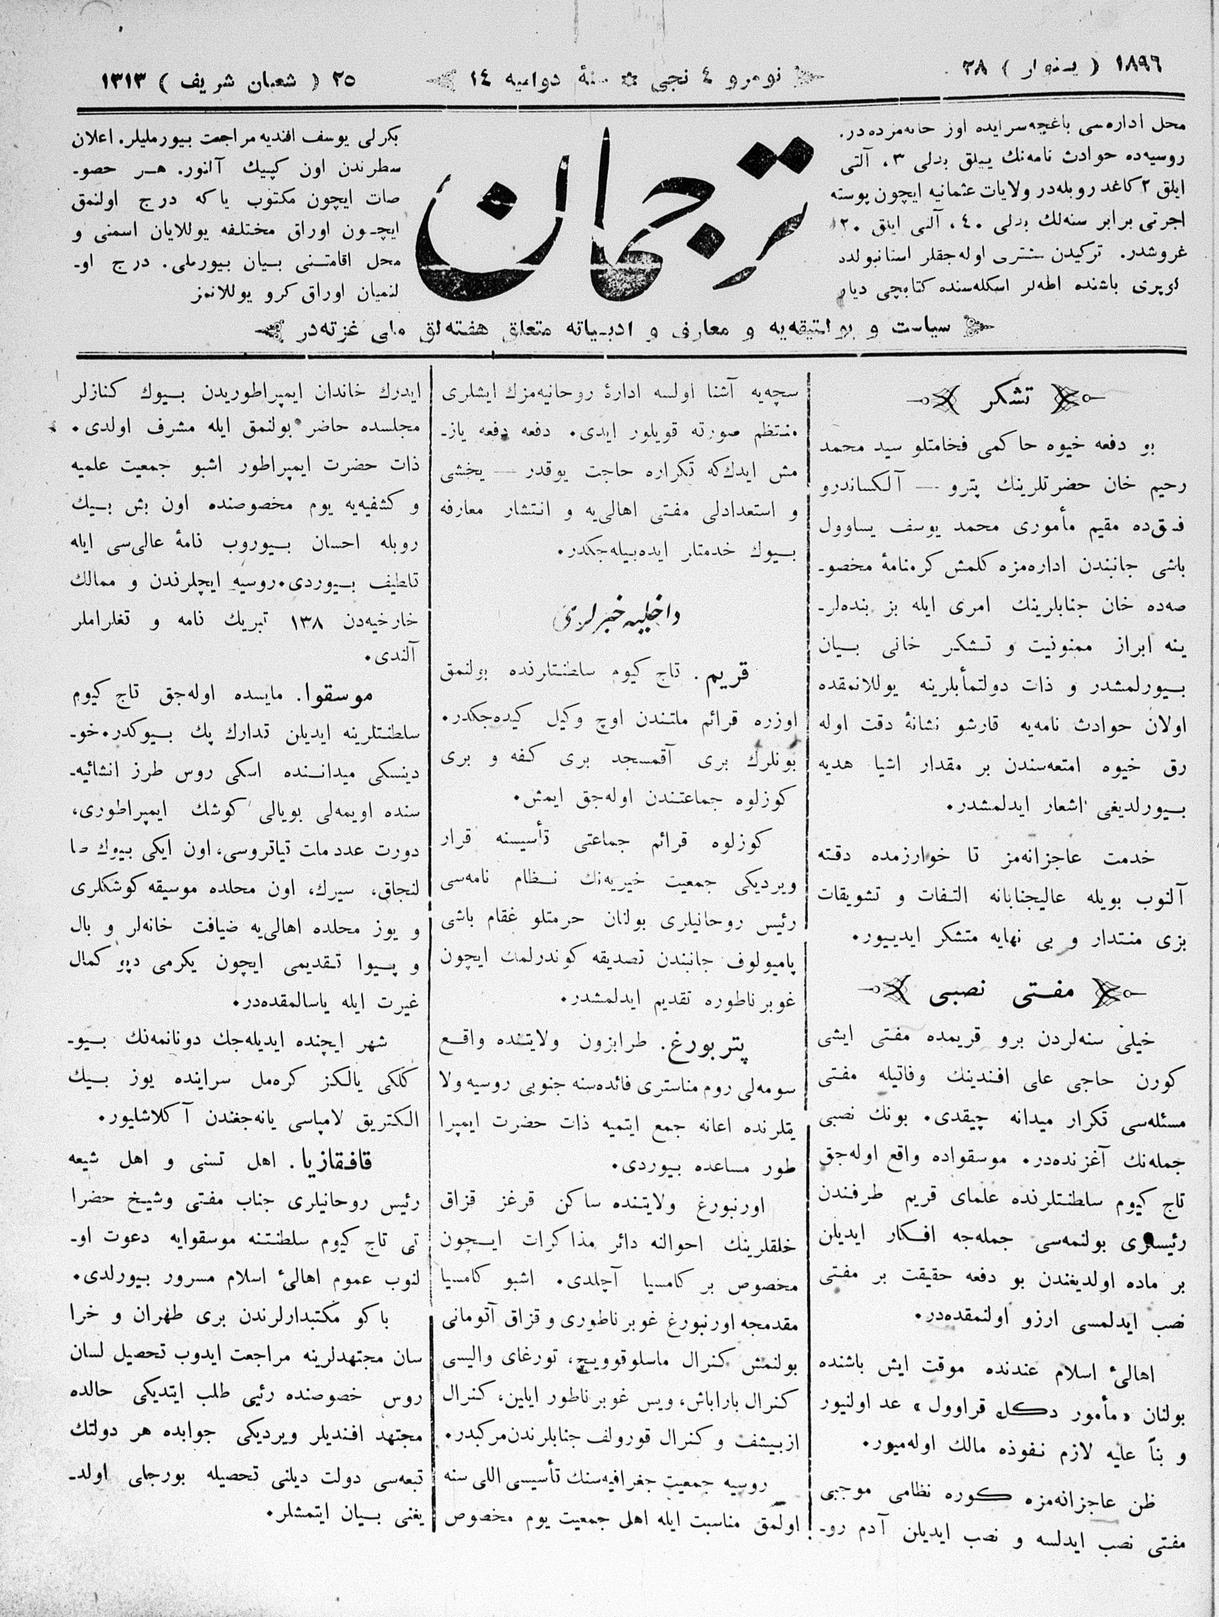 ١٨٩٦ ( ینوار ) ٢٨
نومرو ٤ نجی ✩ سنهٔ دوامیه ١٤
٢٥ ( شعبان شریف ) ١٣١٣
محل اداره‌سی باغچه‌سرایده اوز خانه‌مزده‌در.
روسیه‌ده حوادث نامه‌نك ییللق بدلی ٣، آلتی
ایلق ٢ كاغد روبله‌در ولایات عثمانیه ایچون پوسته
اجرتی برابر سنه‌لك بدلی ٤٠، آلتی ایلق ٢٠
غروشدر. تركیدن مشتری اوله‌جقلر استانبولده
كوپری باشنده اطه‌لر اسكله‌سنده كتابچی دیار
بكرلی یوسف افندیه مراجعت بیورملیلر. اعلان
سطرندن اون كپیك آلنور. هر حصو-
صات ایچون مكتوب یاكه درج اولنمق
ایچون اوراق مختلفه یوللایان اسمنی و
محل اقامتنی بیان بیورملی. درج او-
لنمیان اوراق كرو یوللانمز
ترجمان
سیاست و پولتیقه‌یه و معارف و ادبیاته متعلق هفته‌لق ملی غزته‌در
تشكر
بو دفعه خیوه حاكمی فخامتلو سید محمد
رحیم خان حضرتلرینك پترو — آلكساندرو
فسق‌ده مقیم مأموری محمد یوسف یساوول
باشی جانبندن اداره‌مزه كلمش كرمنامهٔ مخصو-
صه‌ده خان جنابلرینك امری ایله بز بنده‌لر-
ینه ابراز ممنونیت و تشكر خانی بیان
بیورلمشدر و ذات دولتمأبلرینه یوللانمقده
اولان حوادث نامه‌یه قارشو نشانهٔ دقت اوله
رق خیوه امتعه‌سندن بر مقدار اشیا هدیه
بیورلدیغی اشعار ایدلمشدر.
خدمت عاجزانه‌مز تا خوارزمده دقته
آلنوب بویله عالیجنابانه التفات و تشویقات
بزی منتدار و بی نهایه متشكر ایدییور.
مفتی نصبی
خیلی سنه‌لردن برو قریمده مفتی ایشی
كورن حاجی علی افندینك وفاتیله مفتی
مسئله‌سی تكرار میدانه چیقدی. بونك نصبی
جمله‌نك آغزنده‌در. موسقواده واقع اوله‌جق
تاج كیوم سلطنتلرنده علمای قریم طرفندن
رئیسلری بولنمه‌سی جمله‌جه افكار ایدیلن
بر ماده اولدیغندن بو دفعه حقیقت بر مفتی
نصب ایدلمسی ارزو اولنمقده‌در.
اهالیٔ اسلام عندنده موقت ایش باشنده
بولنان «مأمور دكل قراوول» عد اولنیور
و بناً علیه لازم نفوذه مالك اوله‌میور.
ظن عاجزانه‌مزه كوره نظامی موجبی
مفتی نصب ایدلسه و نصب ایدیلن آدم رو-
سچه‌یه آشنا اولسه ادارهٔ روحانیه‌مزك ایشلری
منتظم صورته قویلور ایدی. دفعه دفعه یاز-
مش ایدك‌كه تكراره حاجت یوقدر — یخشی
و استعدادلی مفتی اهالی‌یه و انتشار معارفه
بیوك خدمتلر ایده‌بیله‌جكدر.
داخلیه خبرلری
قریم. تاج كیوم سلطنتلرنده بولنمق
اوزره قرائم ملتندن اوچ وكیل كیده‌جكدر.
بونلرك بری آقمسجد بری كفه و بری
كوزلوه جماعتندن اوله‌جق ایمش.
كوزلوه قرائم جماعتی تأسیسنه قرار
ویردیكی جمعیت خیریه‌نك نظام نامه‌سی
رئیس روحانیلری بولنان حرمتلو غقام باشی
پامپولوف جانبندن تصدیقه كوندرلمك ایچون
غوبرناطوره تقدیم ایدلمشدر.
پتربورغ. طرابزون ولایتنده واقع
سومه‌لی روم مناستری فائده‌سنه جنوبی روسیه ولا
یتلرنده اعانه جمع ایتمیه ذات حضرت ایمپرا
طور مساعده بیوردی.
اورنبورغ ولایتنده ساكن قرغز قزاق
خلقلرینك احوالنه دائر مذاكرات ایچون
مخصوص بر كامسیا آچلدی. اشبو كامسیا
مقدمجه اورنبورغ غوبرناطوری و قزاق آتومانی
بولنمش كنرال ماسلوقوویچ، تورغای والیسی
كنرال باراباش، ویس غوبرناطور ایلین، كنرال
ازبیشفت و كنرال قورولف جنابلرندن مركبدر.
روسیه جمعیت جغرافیه‌سنك تأسیسی اللی سنه
اولمق مناسبت ایله اهلی جمعیت یوم مخصوص
ایدرك خاندان ایمپراطوریدن بیوك كنازلر
مجلسده حاضر بولنمق ایله مشرف اولدی.
ذات حضرت ایمپراطور اشبو جمعیت علمیه
و كشفیه‌یه یوم مخصوصنده اون بش بیك
روبله احسان بیوروب نامهٔ عالی‌سی ایله
تلطیف بیوردی. روسیه ایچلرندن و ممالك
خارخیه‌دن ١٣٨ تبریك نامه و تغلراملر
آلندی.
موسقوا. مایسده اوله‌جق تاج كیوم
سلطنتلرینه ایدیلن تدارك پك بیوكدر. خو-
دینسكی میداننده اسكی روس طرز انشائیه-
سنده اویمه‌لی بویالی كوشك ایمپراطوری،
دورت عدد مات تیاتروسی، اون ایكی بیوك صا
لنجاق، سیرك، اون محلده موسیقه كوشكلری
و یوز محلده اهالی‌یه ضیافت خانه‌لر و بال
و پیوا تقدیمی ایچون یكرمی دپو كمال
غیرت ایله یاسالمقده‌در.
شهر ایچنده ایدیله‌جك دونانمه‌نك بیو-
كلكی یالكز كره‌مل سراینده یوز بیك
الكتریق لامپاسی یانه‌جغندن آكلاشلیور.
قافقازیا. اهل تسنی و اهل شیعه
رئیس روحانیلری جناب مفتی وشیخ حضرا
تی تاج كیوم سلطنتنه موسقوایه دعوت او-
لنوب عموم اهالیٔ اسلام مسرور بیورلدی.
باكو مكتبدارلرندن بری طهران و خرا
سان مجتهدلرینه مراجعت ایدوب تحصیل لسان
روس خصوصنده رئیی طلب ایتدیكی حالده
مجتهد افندیلر ویردیكی جوابده هر دولتك
تبعه‌سی دولت دیلنی تحصیله بورجلی اولد-
یغنی بیان ایتمشلر.